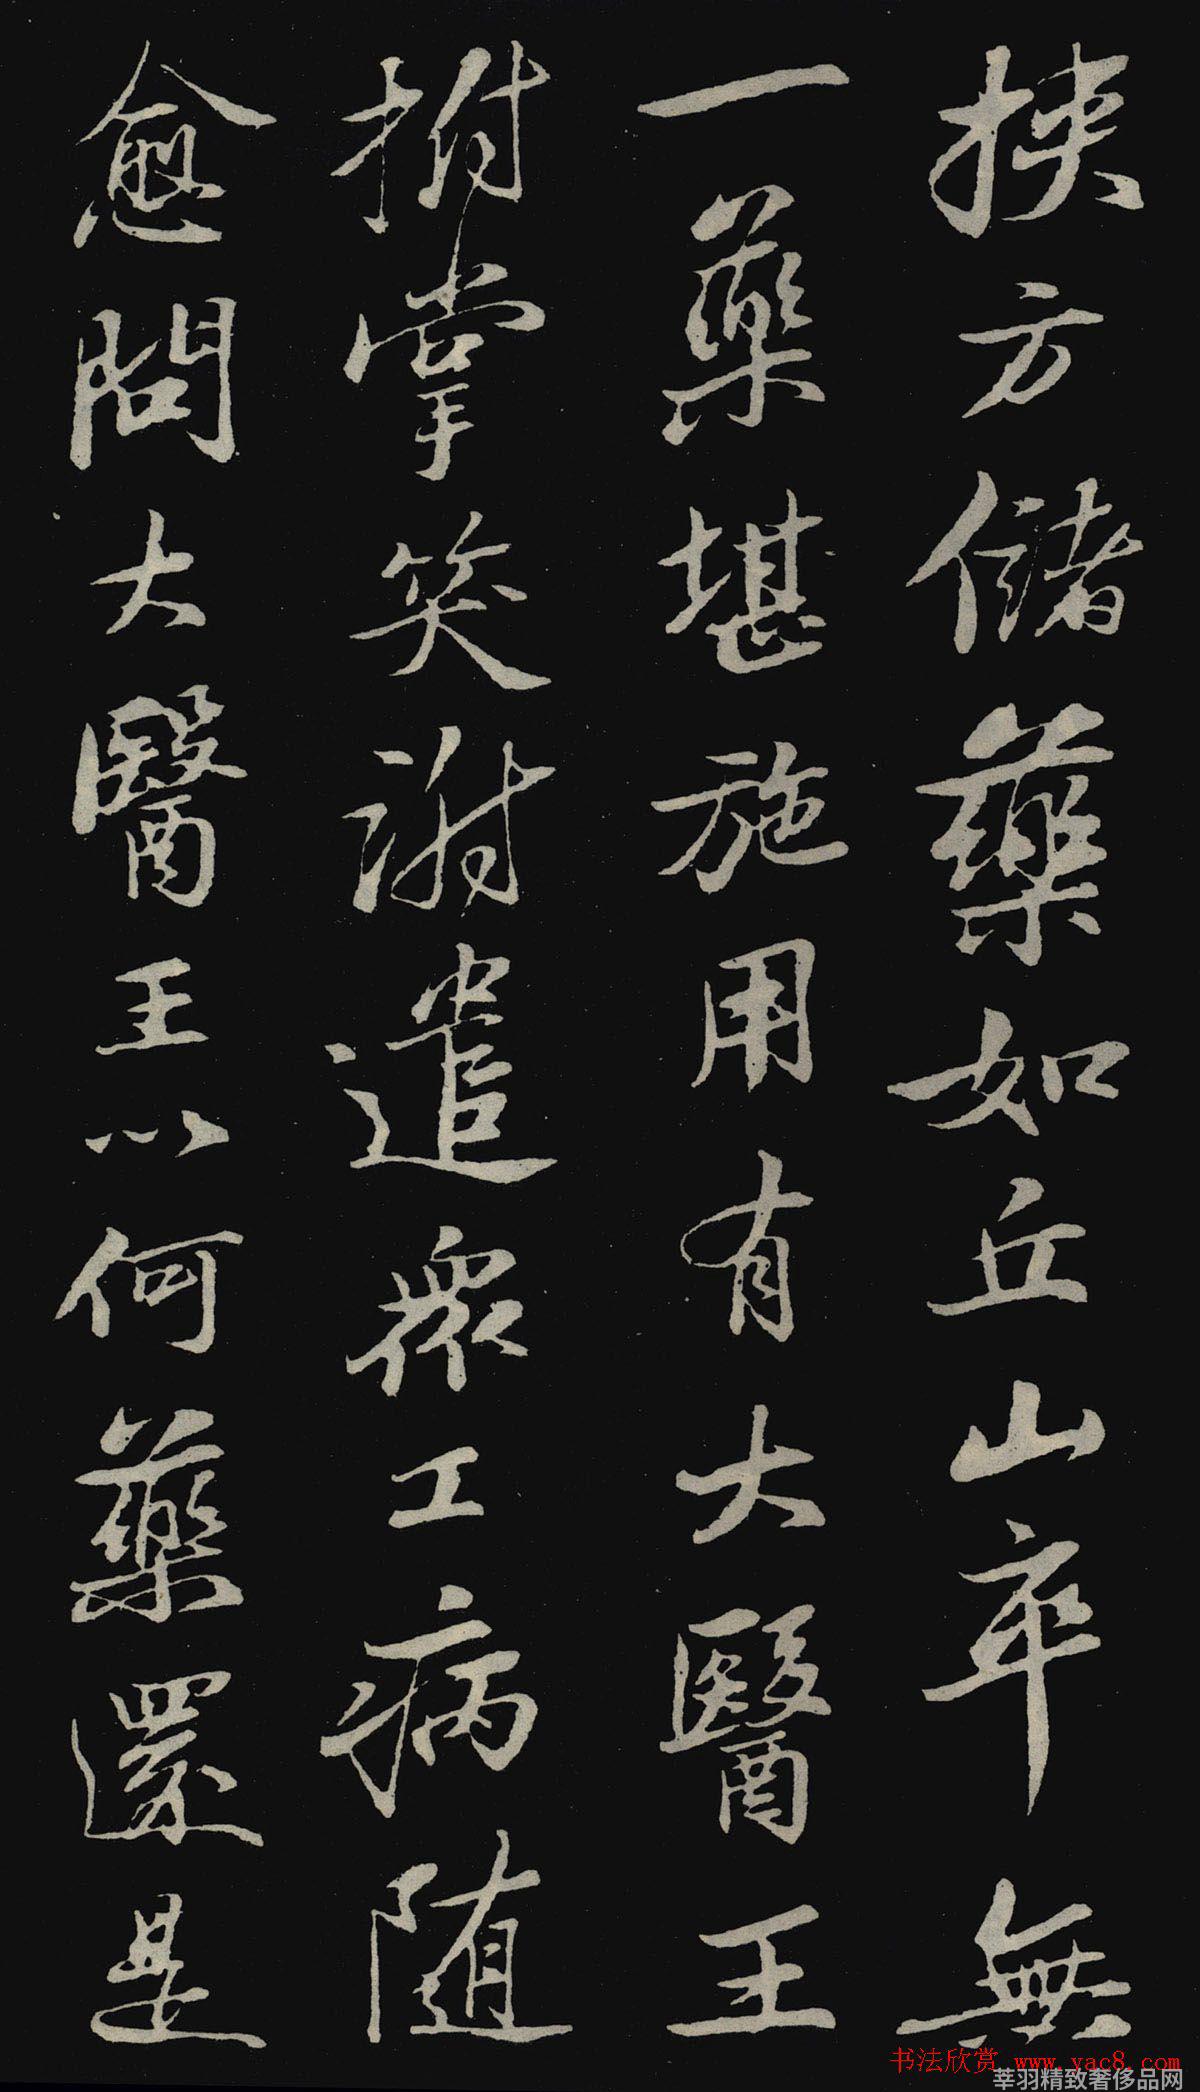 挾方儲藥如丘山卒無
一藥堪施用有大醫王
拊掌笑謝遣眾工病隨
愈問大醫王以何藥還是
书法欣赏 www.yac8.com
莘羽精致奢侈品网